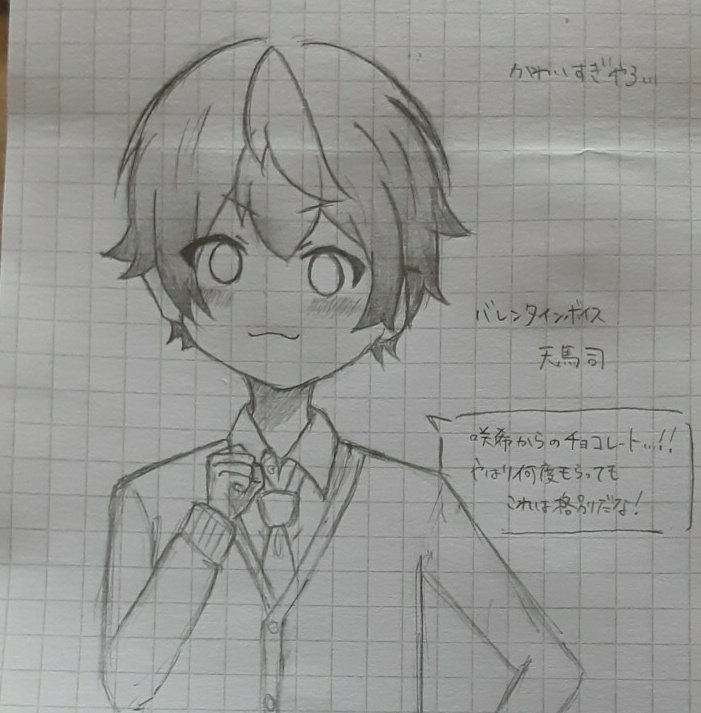 かわいすぎやろ...
バレンタインボイス
天馬司
咲希からのチョコレート...!!
やはり何度もらっても
これは格別だな!